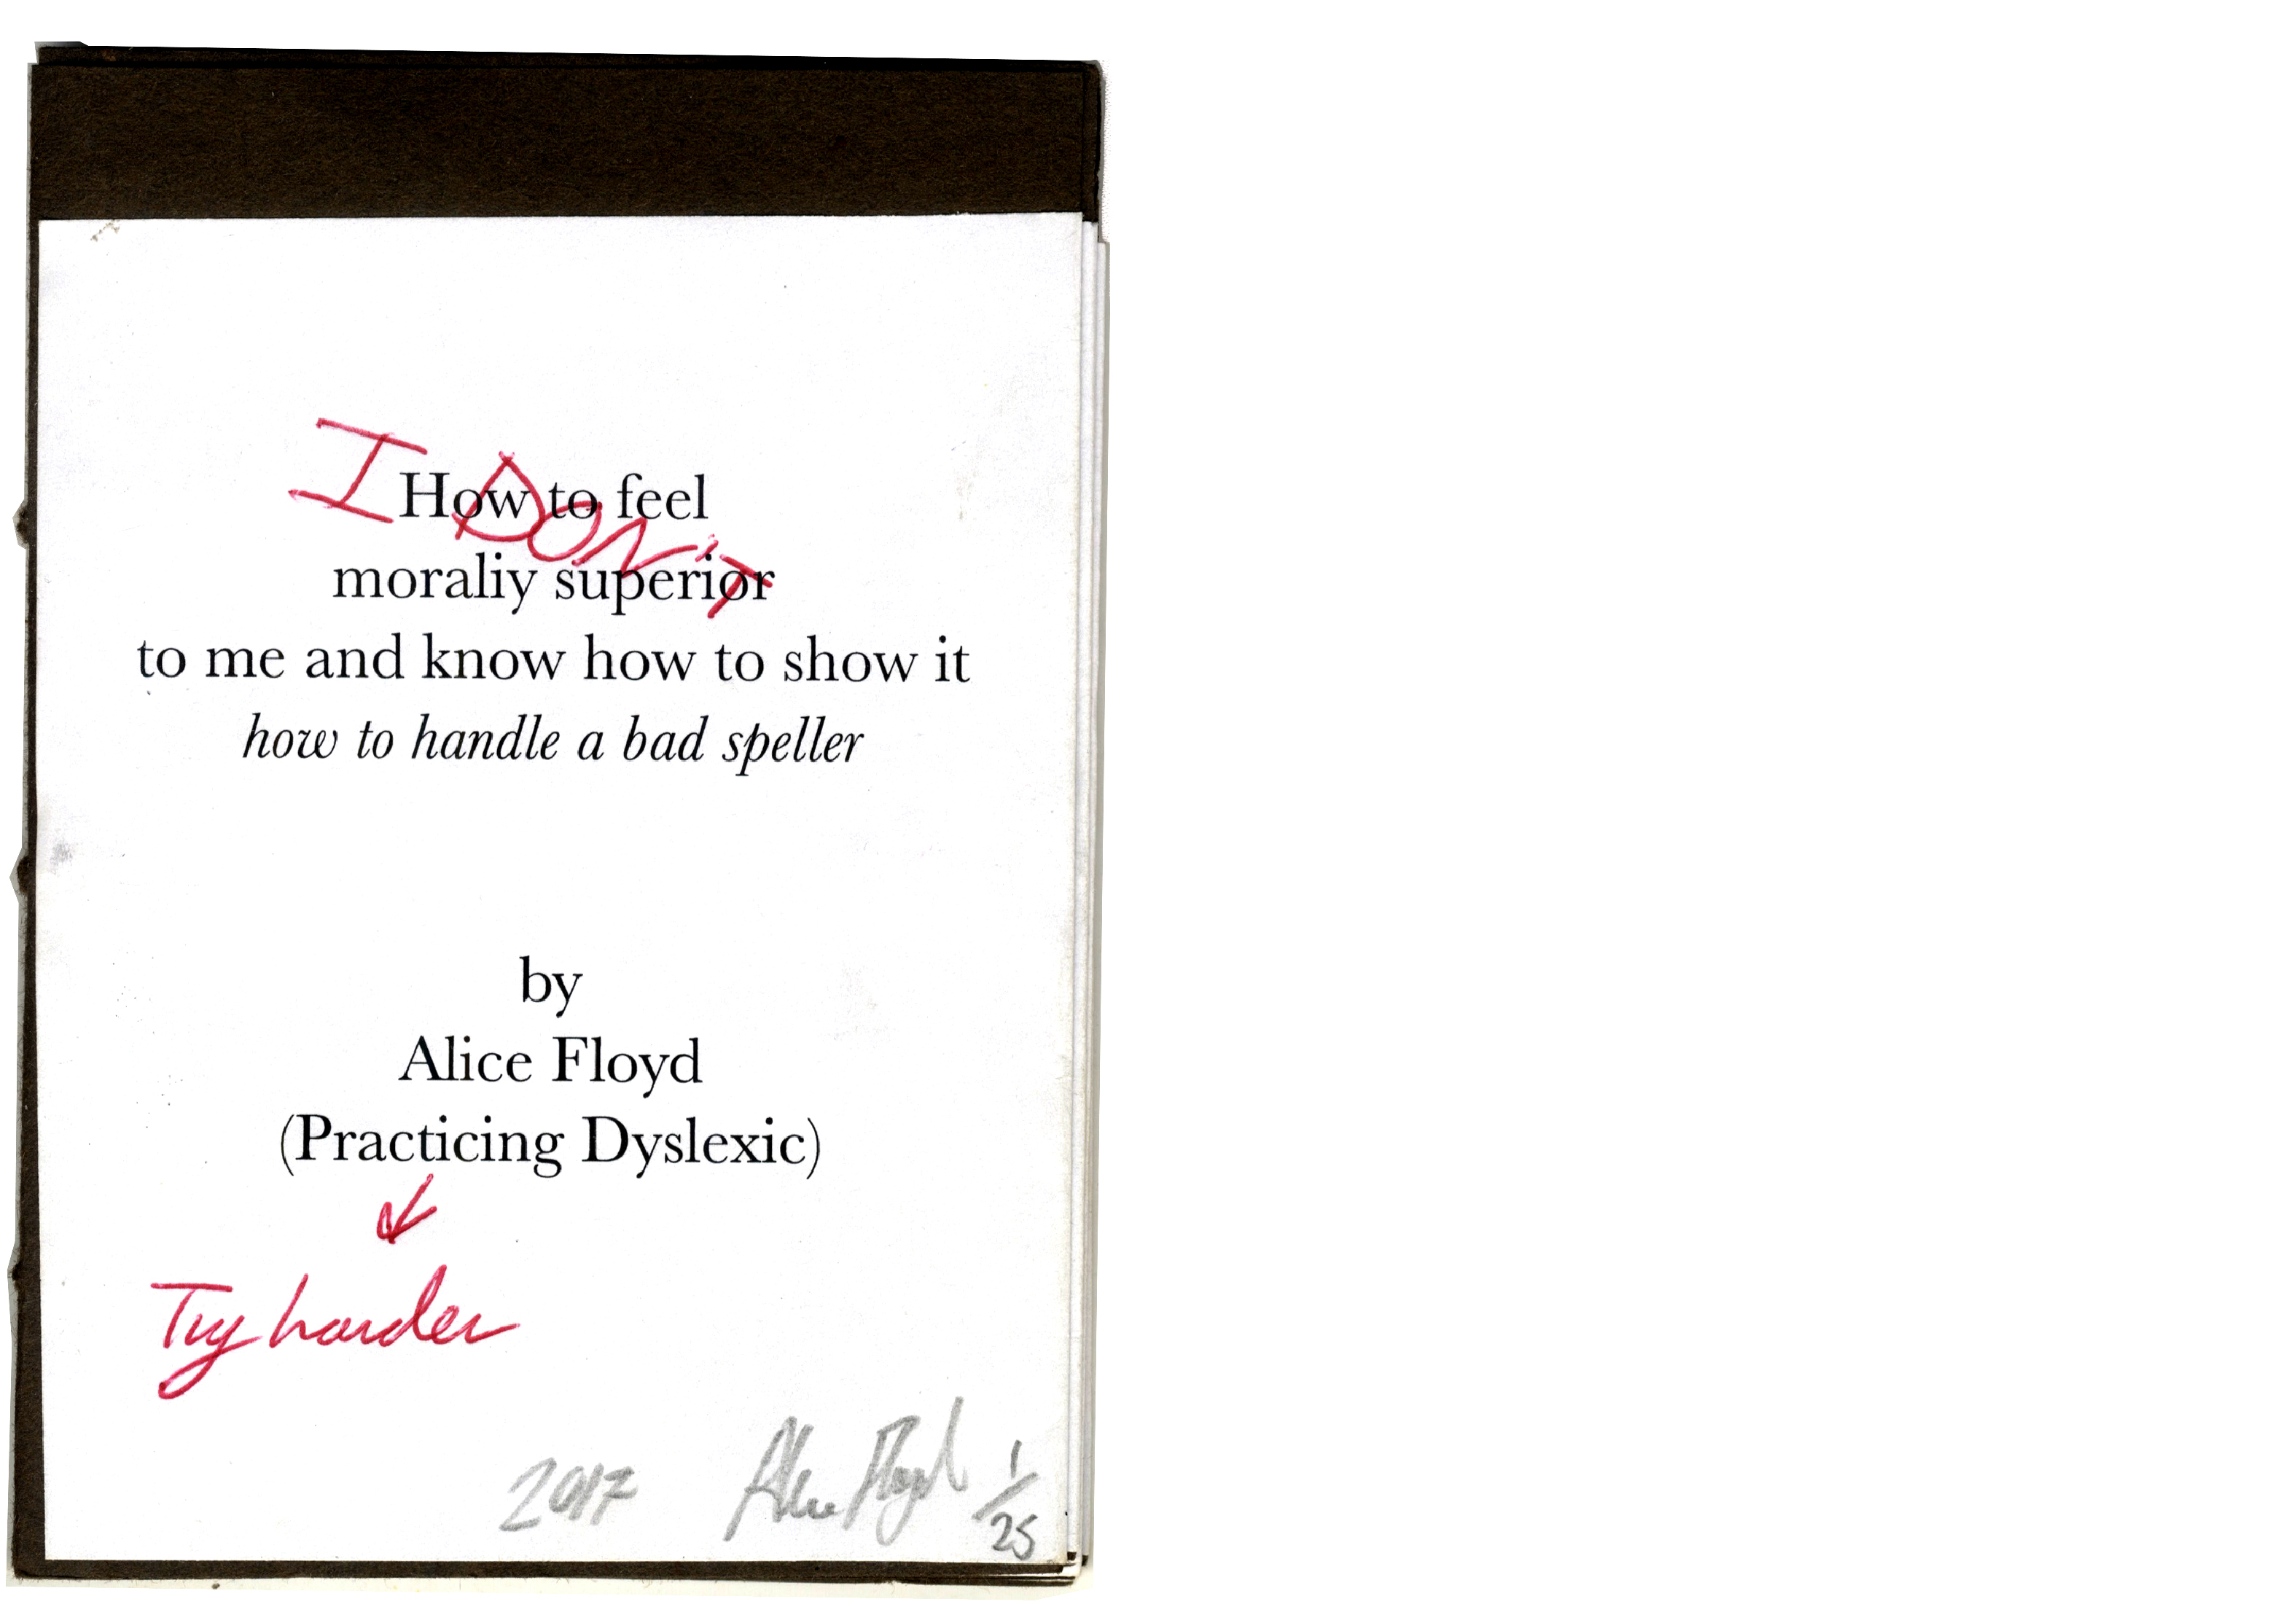 I DON'T
How to feel
moraliy superior
to me and know how to show it
how to handle a bad speller
by
Alice Floyd
(Practicing Dyslexic)
Try harder
2017 Alice Floyd 1/25